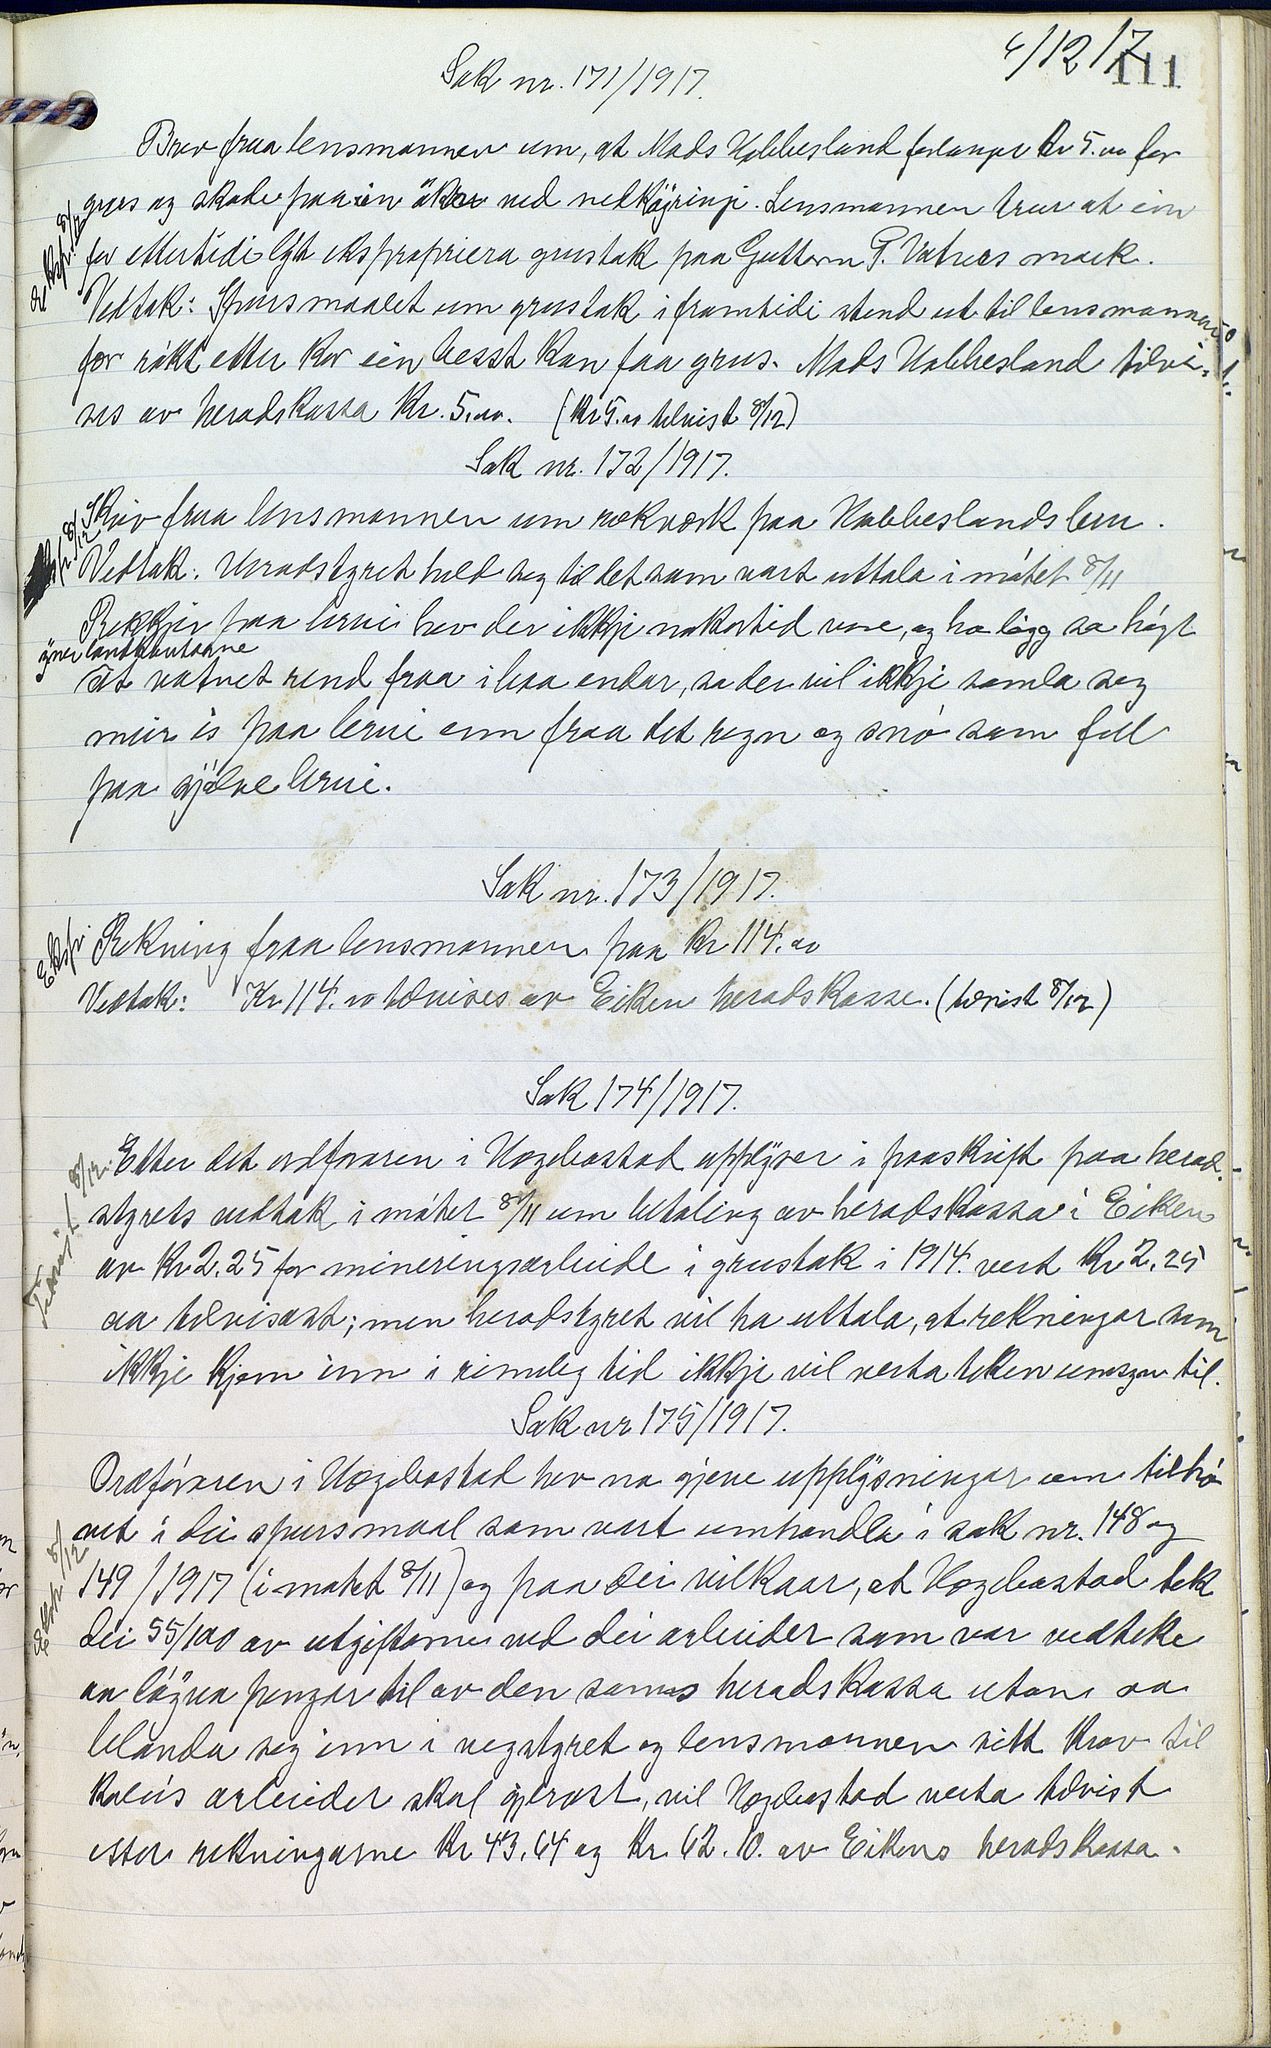 6/12 17
111
Sak nr. 171/1917.
Brev fraa lensmannen um, at Mads Ubbesland forlanger Kr 5.00 for
grus og skade paa ein åker ved nedkøyring. Lensmannen trur at ein
for ettertidi lyt ekspropriera grustak paa Guttorm P. Vatnes mark.
Vedtak: Spursmaalet um grustak i framtidi stend ut til lensmannen
før røkt etter kor ein besst kan faa grus. Mads Ubbesland tilvi-
ses av heradskassa Kr. 5.00. (Kr 5.00 tilvist 8/12)
Ekspr. 8/12
Sak nr. 172/1917.
Skriv fraa lensmannen um rekverk paa Ubbeslandsbrui.
Vedtak. Heradstyret held seg til det som vart uttala i møtet 8/11
Rekkjer paa brui hev der ikkje nokortid vore, og ho ligg so høgt
yver landkantarne
at vatnet rend fraa i baa endar, so der vil ikkje samla seg
meir is paa brui enn fraa det regn og snø som fell
paa sjølve brui.
8/12
Sak nr. 173/1917.
Ekspr. Rekning fraa lensmannen paa Kr 114.00
Vedtak: Kr 114.00 tilvises av Eiken heradskasse. (tilvist 8/12)
Sak 174/1917.
Tilvist 8/12.
Etter det ordføraren i Hægebostad upplyser i paaskrift paa herad-
styrets vedtak i møtet 8/11 um betaling av heradskassa i Eiken
av Kr 2.25 for mineringsarbeide i grustak i 1914 vert Kr 2.25
aa tilvisast; men heradstyret vil ha uttala, at rekningar som
ikkje kjem inn i rimeleg tid ikkje vil verta teken umsyn til.
Sak nr 175/1917.
Ekspr 8/12
Ordføraren i Hægebostad hev no gjeve upplysningar um tilhø-
vet i dei spursmaal som vart umhandla i sak nr. 148 og
149/1917 (i møtet 8/11) og paa dei vilkaar, at Hægebostad tek
dei 55/100 av utgiftarne ved dei arbeider som var vedteke
aa løyva pengar til av den sams heradskassa utan aa
blanda seg inn i vegstyret og lensmannen sitt krav til
koleis arbeider skal gjerast, vil Hægebostad verta tilvist
etter rekningarne Kr 43.64 og Kr. 62.10. av Eikens heradskassa.